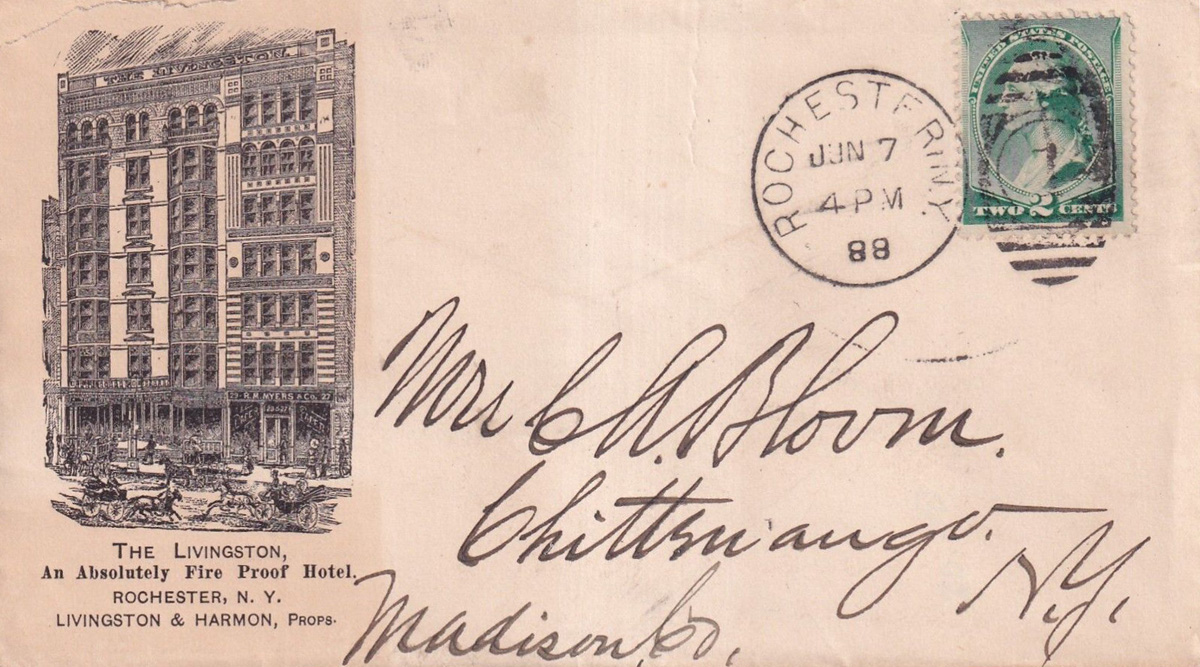 THE LIVINGSTON.
29 R.M. MYERS & CO. 27
THE LIVINGSTON,
An Absolutely Fire Proof Hotel.
ROCHESTER, N. Y.
LIVINGSTON & HARMON, PROPS.
ROCHESTER, N.Y.
JUN 7
4 PM
88
UNITED STATES POSTAGE
TWO 2 CENTS
1
Mrs C A. Bloom.
Chittenango.
N.Y.
Madison, Co,